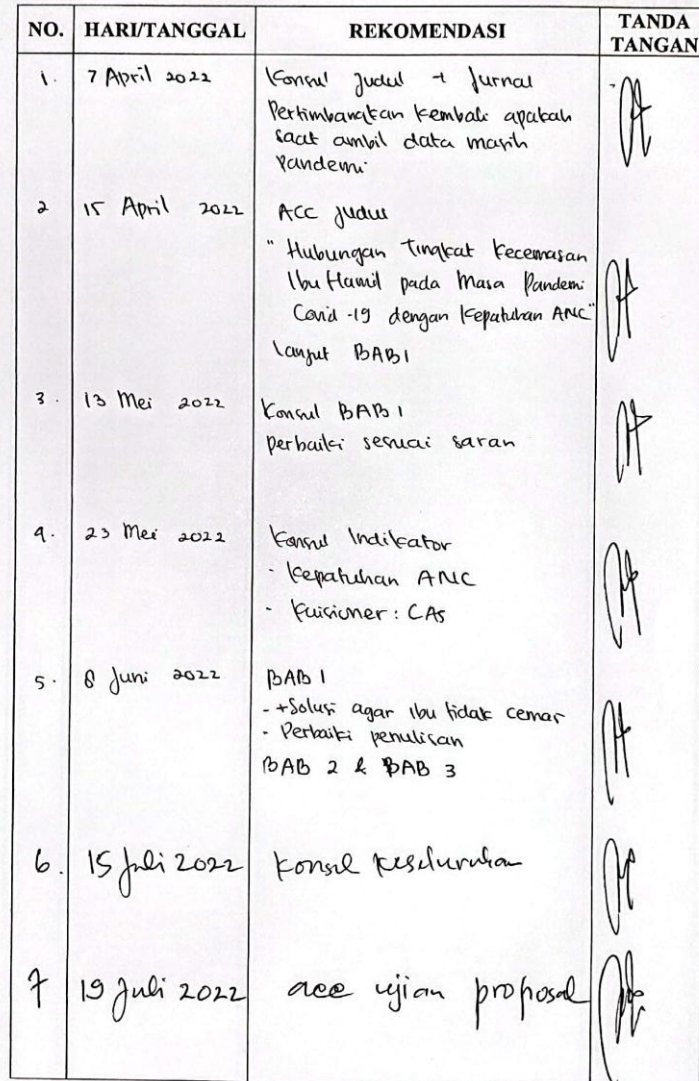 NO. HARI/TANGGAL REKOMENDASI TANDA TANGAN
1. 7 April 2022 Konsul Judul + Jurnal
Pertimbangkan kembali apakah
saat ambil data masih
pandemi.
2 15 April 2022 ACC Judul
"Hubungan Tingkat Kecemasan
Ibu Hamil pada Masa Pandemi
Covid-19 dengan Kepatuhan ANC"
Lanjut BAB 1
3. 13 Mei 2022 Konsul BAB 1
perbaiki sesuai saran
4. 23 Mei 2022 Konsul Indikator
- Kepatuhan ANC
- Kuisioner : CAS
5. 8 Juni 2022 BAB 1
- +Solusi agar ibu tidak cemas
- Perbaiki penulisan
BAB 2 & BAB 3
6. 15 Juli 2022 Konsul keseluruhan
7 19 Juli 2022 acc ujian proposal